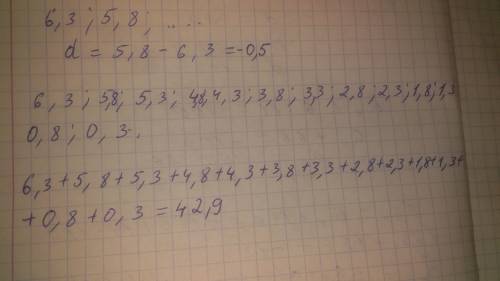 6,3 ; 5,8 ; .....
d = 5,8 - 6,3 = -0,5
6,3 ; 5,8; 5,3 ; 4,8; 4,3 ; 3,8 ; 3,3 ; 2,8 ; 2,3 ; 1,8 ; 1,3
0,8 ; 0,3.
6,3 + 5,8 + 5,3 + 4,8 + 4,3 + 3,8 + 3,3 + 2,8 + 2,3 + 1,8 + 1,3 +
+ 0,8 + 0,3 = 42,9